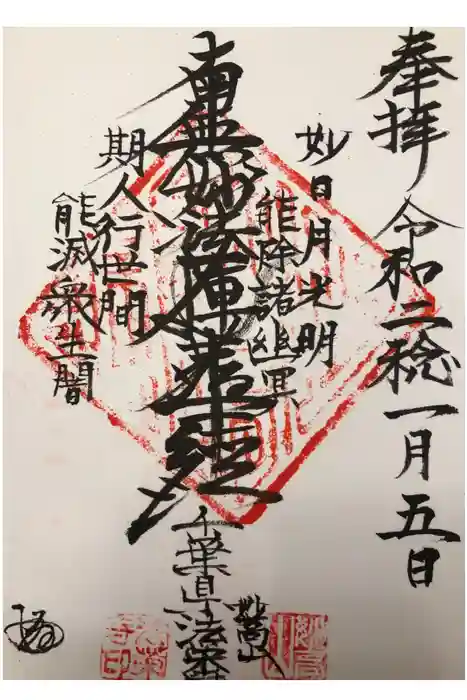 奉拝 令和二稔一月五日
如日月光明
能除諸幽冥
南無妙法蓮華経
斯人行世間
能滅衆生闇
千葉県法